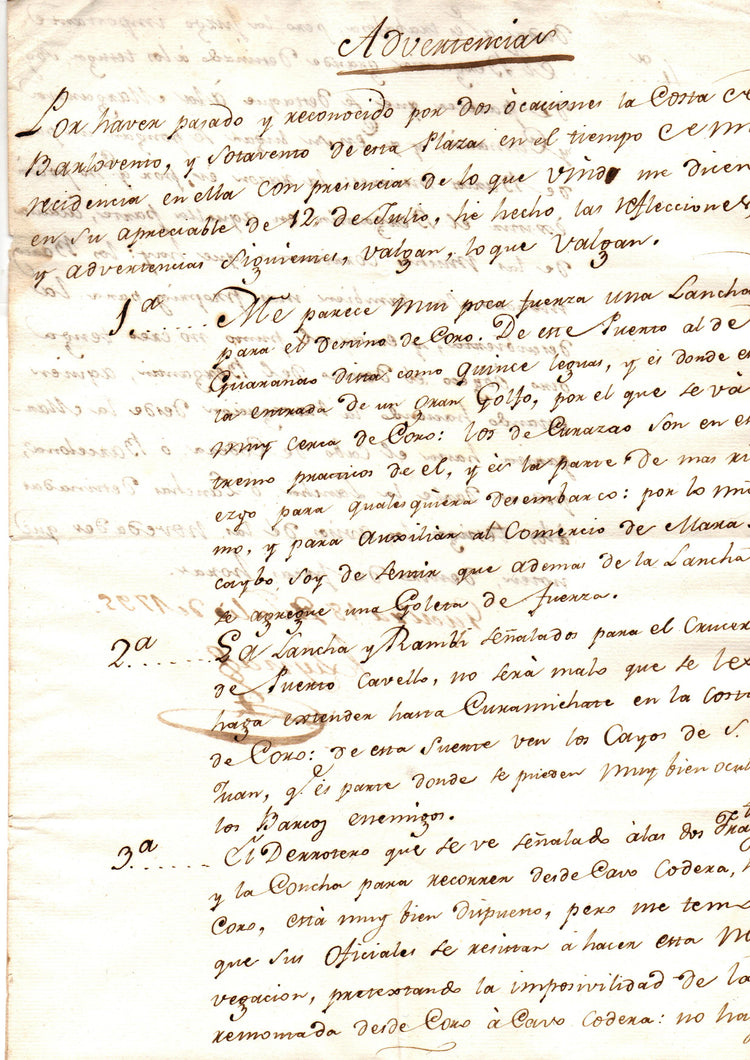 Advertencias
Por haver pasado y reconocido por dos òcaciones la Costa de
Barlovento, y Sotavento de esta Plaza en el tiempo de mi
recidencia en ella con presencia de lo que Vind me dicen
en su apreciable de 12 de Julio, he hecho las reflecciones
y advertencias siguientes, valgan, lo que valgan.
1.a Me parece mui poca fuerza una Lancha
para el Destino de Coro. De este Puerto al de
Guaranao dista como quince leguas, y és donde es
la entrada de un gran Golfo, por el que se và
muy cerca de Coro: los de Curazao son en es
tremo practicos de el, y és la parte de mas ri
ezgo para qualesquiera desembarco: por lo mis
mo, y para Auxiliar al Comercio de Mara
caybo soy de sentir que ademas de la Lancha
se agregue una Goleta de fuerza.
2.a La Lancha y Rambli señalados para el Crucero
de Puerto Cavello, no serà malo que se les
haga extender hasta Curamichate en la costa
de Coro: de esta suerte ven los Cayos de S.
Juan, q.e és parte donde se pueden muy bien ocul
los Barcos enemigos.
3.a El Derrotero que se ve señalado àlas dos
y la Concha para recorrer desde Cavo Codera,
Coro, està muy bien dispuesto, pero me tem
que sus Oficiales se resistan à hacer esta
vegacion, pretextando la imposivilidad de la
remontada desde Coro à Cavo Codera: no ha